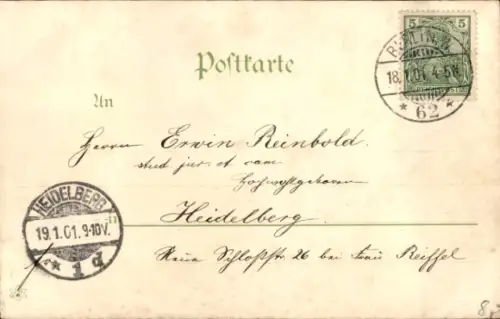 5 5
BERLIN W.
18.1.01. 4-5N.
* 62 *
Postkarte
An
Herrn Erwin Reinbold.
stud jur. et cam
Hochwohlgeboren
Heidelberg.
Neue Schloßstr 26 bei Frau Reiffel
HEIDELBERG
19.1.01.9-10V.
* 1 d
8,